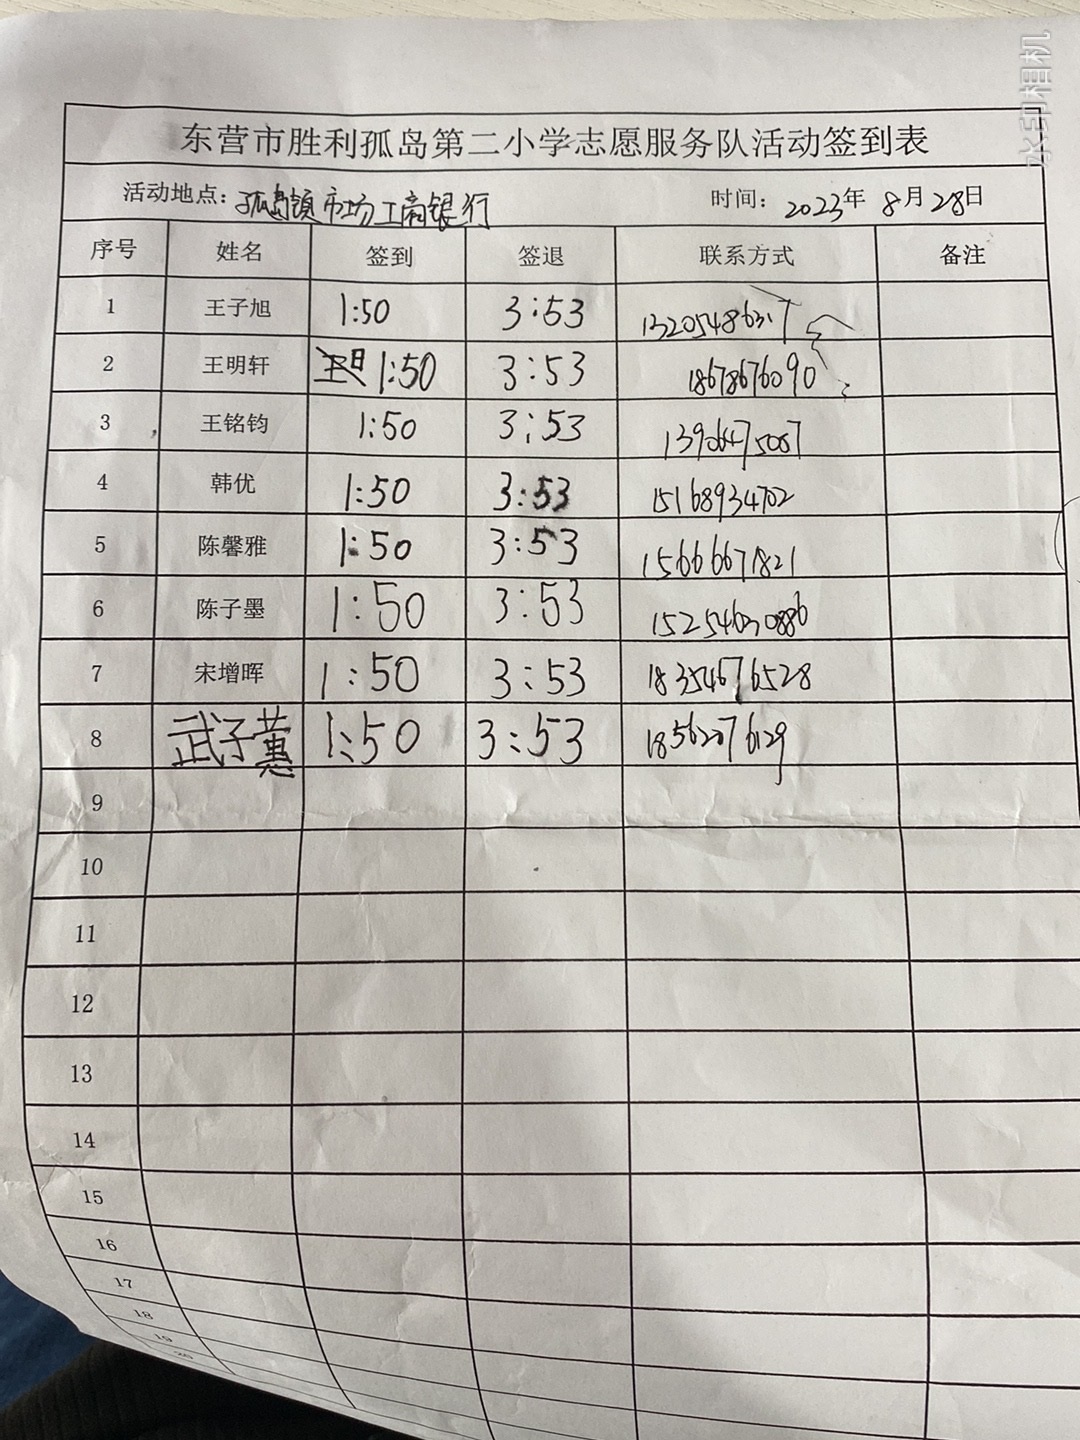 水印相机
东营市胜利孤岛第二小学志愿服务队活动签到表
活动地点：孤岛镇市场工商银行 时间：2023年 8月28日
序号 姓名 签到 签退 联系方式 备注
1 王子旭 1:50 3:53 13205486317
2 王明轩 1:50 3:53 18678676090
3 王铭钧 1:50 3:53 13906475067
4 韩优 1:50 3:53 15168934702
5 陈馨雅 1:50 3:53 15666671821
6 陈子墨 1:50 3:53
7 宋增晖 1:50 3:53 18354676528
8 武子蕙 1:50 3:53 18562076129
9
10
11
12
13
14
15
16
17
18
19
20